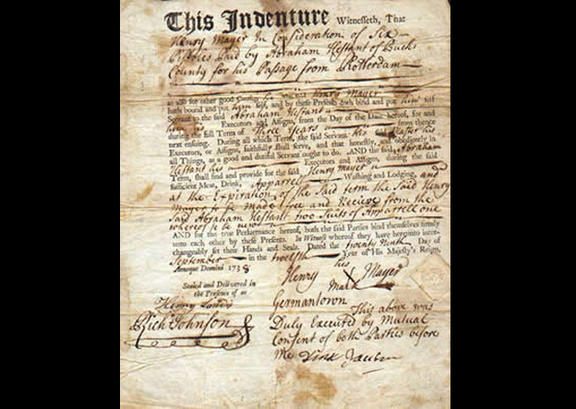 This Indenture Witnesseth, That
Henry Mayer In Consideration of Six
Pistoles Paid by Abraham Hestant of Bucks
County for his Passage from Rotterdam
as also for other good Henry Mayer
hath bound and put him self, and by these Presents doth bind and put him self
Servant to the said Abraham Hestant
his Executors and Assigns, from the Day of the Date hereof, for and
during the full Term of Three Years from thence
next ensuing. During all which Term, the said Servant his said Master his
Executors, or Assigns, faithfully shall serve, and that honestly, and obediently in
all Things, as a good and dutiful Servant ought to do. AND the said Abraham
Hestant his Executors and Assigns, during the said
Term, shall find and provide for the said Henry mayer
sufficient Meat, Drink, Apparrell Washing and Lodging, and
at the Expiration of the Said term the Said Henry
Mayer to be made free and Recieve from the
Said Abraham Hestant two Suits of Apparrell one
whereof to be new
AND for the true Performance hereof, both the said Parties bind themselves firmly
unto each other by these Presents. In Witness whereof they have hereunto inter-
changeably set their Hands and Seals. Dated the twenty Ninth Day of
September in the twelfth Year of His Majesty's Reign,
Annoque Domini 1738
his
Henry X Mayer
mark
Sealed and Delivered in
the Presence of us
Rich Johnson
Germantown
This above was
Duly Executed by Mutual
Consent of both Parties before
me